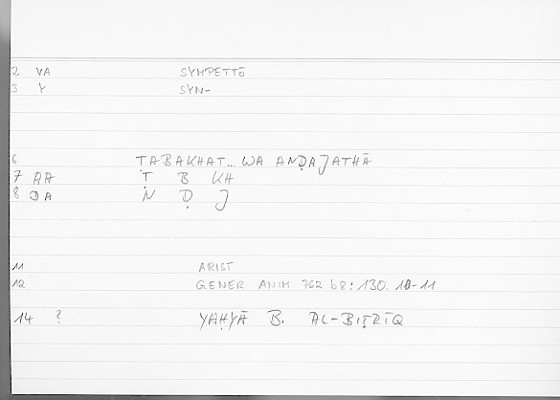 2 VA SYMPETTŌ
3 Y SYN-
6 ṬABAKHAT... WA ANḌAJATHĀ
7 AA Ṭ B KH
8 DA N Ḍ J
11 ARIST
12 GENER ANIM 762 b8: 130.10-11
14 ? YAḤYĀ B. AL-BIṬRĪQ